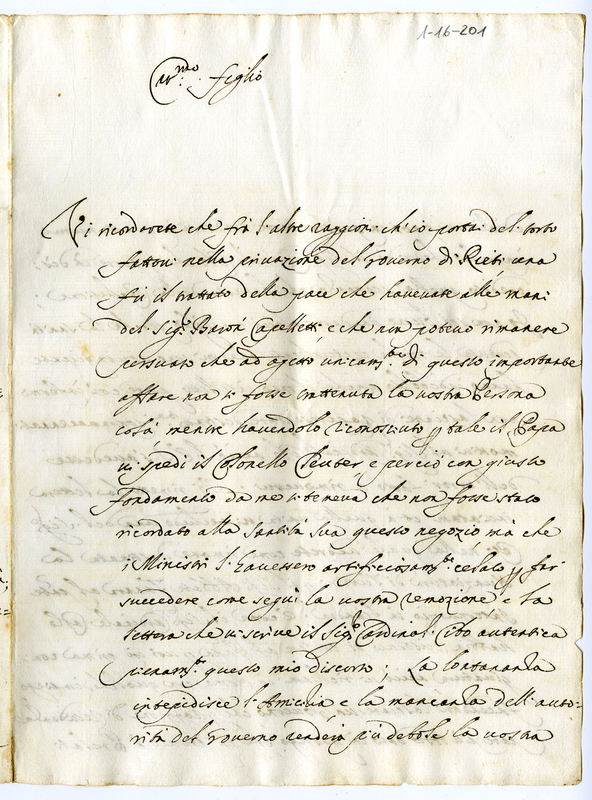 1-16-201
Car.mo figlio
Vi ricordarete che frà l'altre raggioni ch'io portai del torto
fattovi nella privazione del Governo di Rieti una
fù il trattato della pace che havevate alle mani
del Sig.r Baron Capelletti, e che non potevo rimanere
persuaso che ad effetto unicam.te di questo importante
affare non vi fosse trattenuta la vostra Persona
colà, mentre havendolo riconosciuto p tale il Papa
vi spedì il Colonello Peuter, e perciò con giusto
fondamento da me si teneva che non fosse stato
ricordato alla Santità sua questo negozio mà che
i Ministri l'havessero artificiosam.te celato p far
succedere come seguì la vostra remozione e la
lettera che vi scrive il Sig.r Cardinal Cibo autentica
pienam.te questo mio discorso; La lontananza
intepidisce l'Amicizia e la mancanza dell'auto=
rità del Governo renderà più debole la vostra